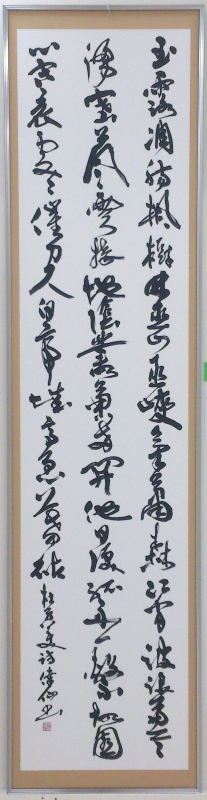 玉露凋傷楓樹林巫山巫峽氣蕭森江間波浪兼天
湧塞上風雲接地陰叢菊兩開他日淚孤舟一繫故園
心寒衣處處催刀尺白帝城高急暮砧 杜甫詩 書